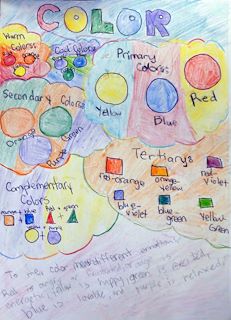 COLOR
Warm
Colors:
Cool Colors:
Primary
Colors:
Yellow
Blue
Red
Secondary Colors
Orange
Purple
Green
Tertiarys
red-orange
orange
yellow
red-
violet
blue-
violet
blue-
green
Yellow
Green
Complementary
Colors
orange + blue
red + green
yellow + purple
To me color means different emotions
Red is angry
energetic, yellow is happy, green is
blue is purple is relaxed